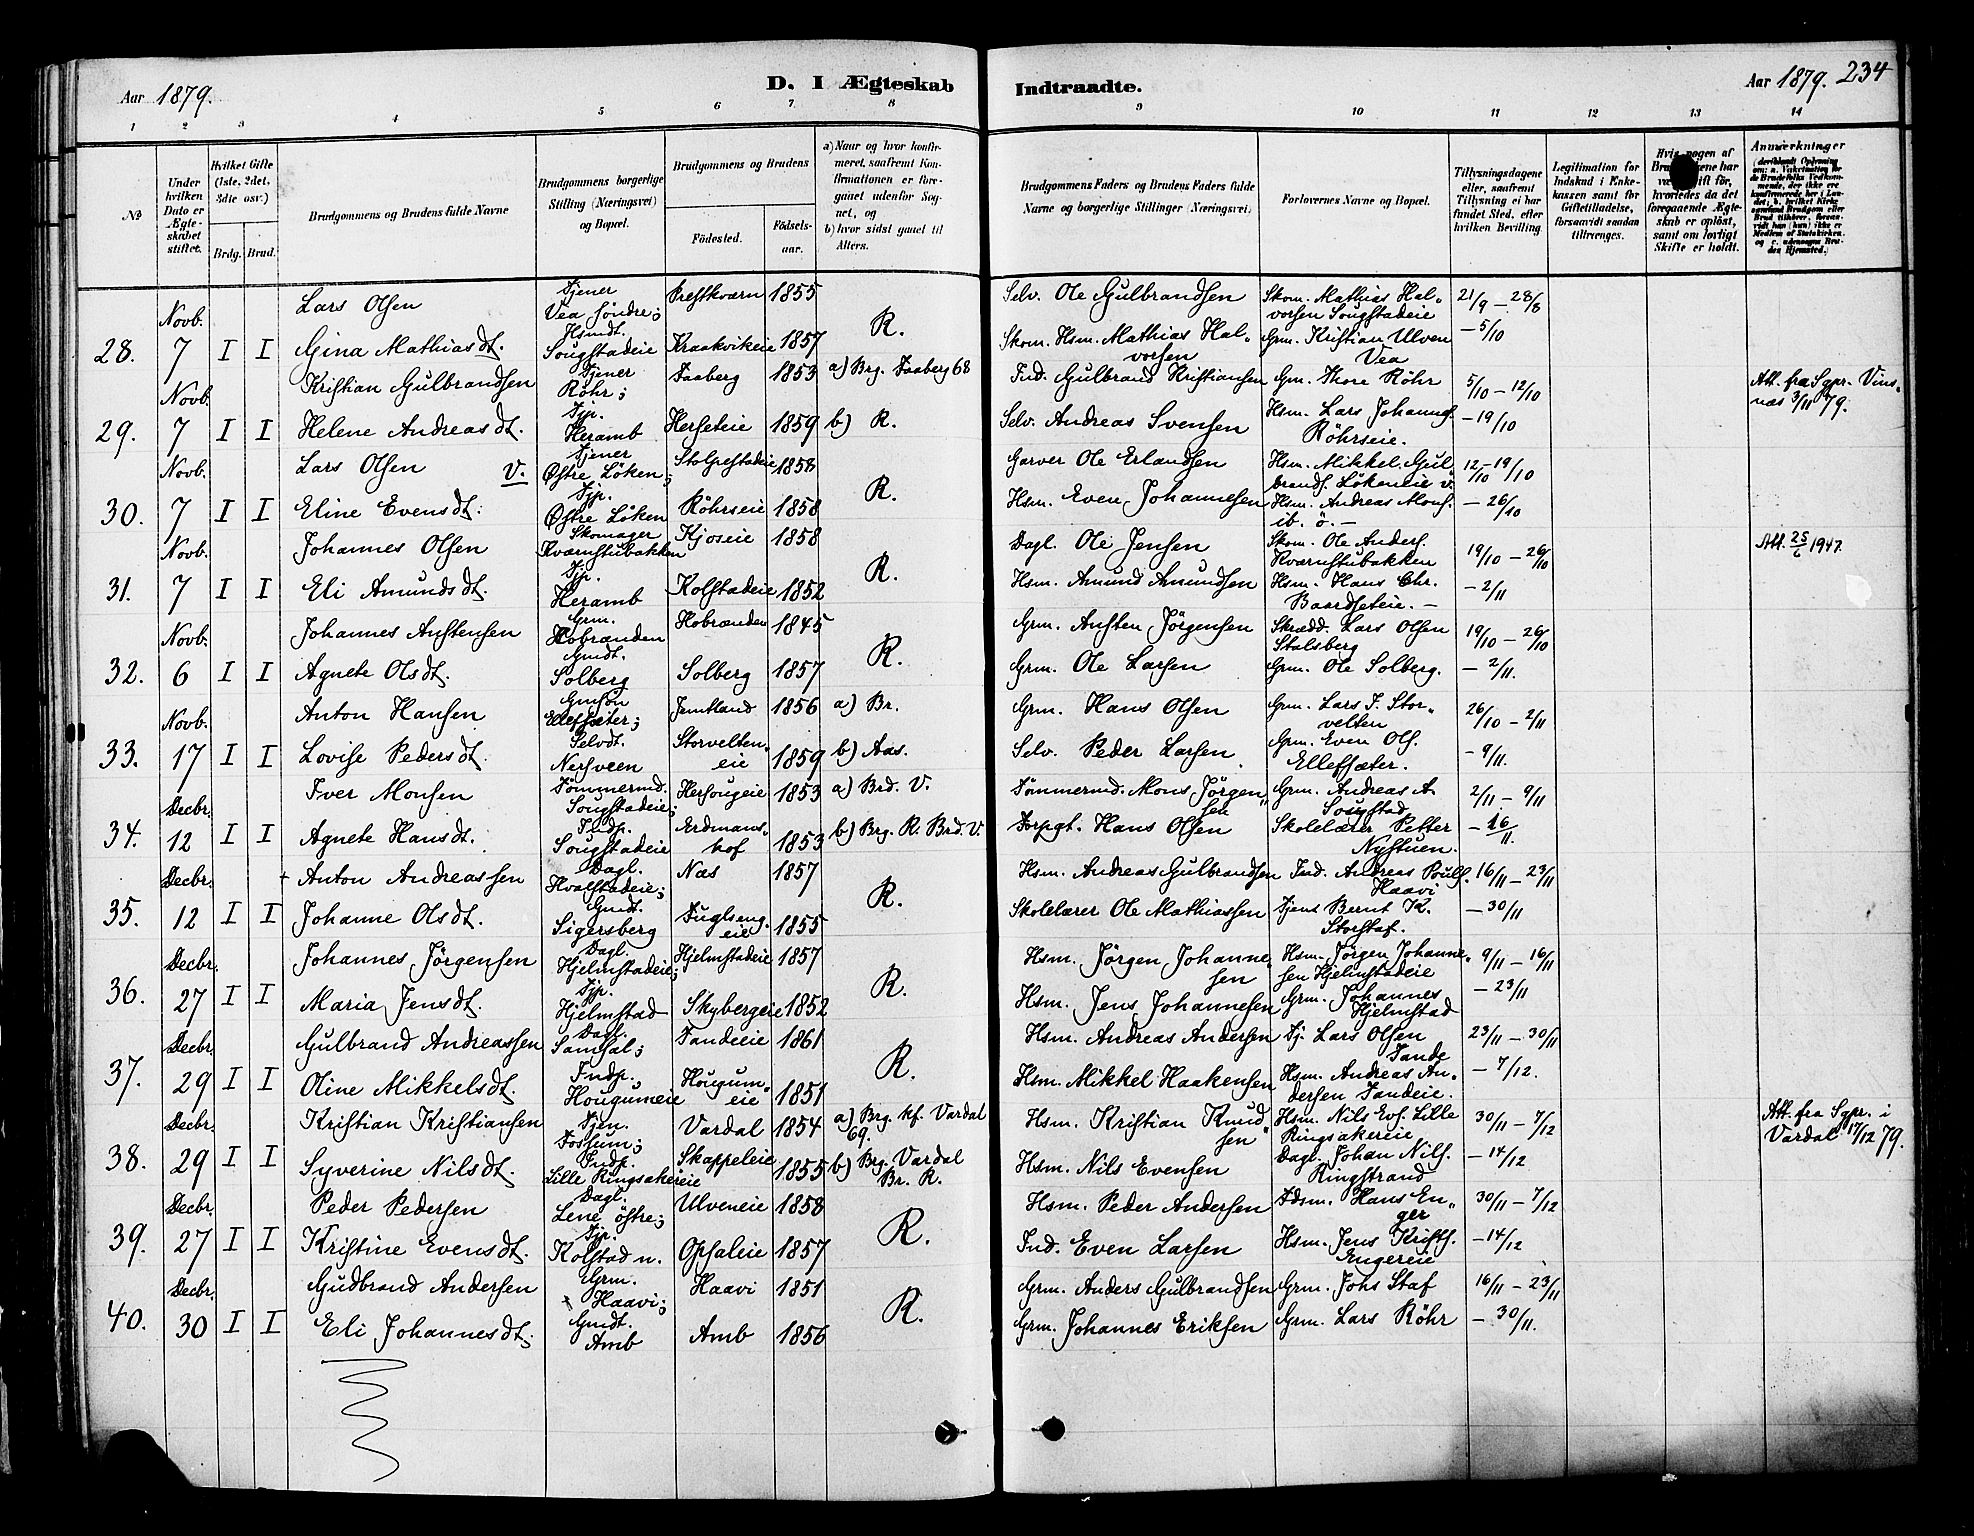 Aar 1879.
D. I Ægteskab Indtraadte.
Aar 1879. 234
1 2 3 4 5 6 7 8 9 10 11 12 13 14
№
Under hvilken Dato er Ægteskabet stiftet.
Hvilket Gifte (1ste, 2det, 3die osv.)
Brdg. Brud.
Brudgommens og Brudens fulde Navne
Brudgommens borgerlige Stilling (Næringsvei) og Bopæl.
Brudgommens og Brudens
Födested.
Födselsaar.
a) Naar og hvor konfirmeret, saafremt Konfirmationen er foregaaet udenfor Sognet, og
b) hvor sidst gaaet til Alters.
Brudgommens Faders og Brudens Faders fulde Navne og borgerlige Stillinger (Næringsvei)
Forlovernes Navne og Bopæl.
Tillysningsdagene eller, saafremt Tillysning ei har fundet Sted, efter hvilken Bevilling.
Legitimation for Indskud i Enkekassen samt for Giftetilladelse, forsaavidt saadan tiltrænges.
Hvis nogen af
foregaaende Ægteskab er oplöst, samt om lovligt Skifte er holdt.
Anmærkninger
28. Novb. 7 I I
Lars Olsen Tjener Vea söndre; Prestkværn 1855
Selv. Ole Gulbrandsen Skom. Mathias Halvorsen Sougstadeie 21/9 – 28/8
Gina Mathiasdt. Hsmdt. Sougstadeie Kraakvikeie 1857 R.
Skom. Hsm. Mathias Halvorsen Grm. Kristian Ulven Vea – 5/10
29. Novb. 7 I I
Kristian Gulbrandsen Tjener Röhr; Faaberg 1853 a) Brg. Faaberg 68
Ind. Gulbrand Kristiansen Gm. Thore Röhr 5/10 – 12/10
Att. fra Sgpr. Vinsnæs 3/11 79.
Helene Andreasdt. Tjp. Heramb Herseteie 1859 b) R.
Selv. Andreas Svensen Hsm. Lars Johannes. Röhrseie. – 19/10
30. Novb. 7 I I
Lars Olsen V. Tjener Østre Löken; Stolpestadeie 1858
Garver Ole Erlandsen Hsm. Mikkel Gulbrands. Lökeneie v. 12/10 – 19/10
Eline Evensdt. Tjp. Østre Löken Röhrseie 1858 R.
Hsm. Even Johannesen Hsm. Andreas Mons. ib. ö. – – 26/10
31. Novb. 7 I I
Johannes Olsen Skomager Kværnstubakken Kjoseie 1858
Dagl. Ole Jensen Skom. Ole Anders. Kværnstubakken 19/10 – 26/10
Att. 25/6 1947.
Eli Amundsdt. Tjp. Heramb Kolstadeie 1852 R.
Hsm. Amund Amundsen Hsm. Hans Chr. Baardseteie. – – 2/11
32. Novb. 6 I I
Johannes Anstensen Grm. Hobranden Hobranden 1845
Grm. Ansten Jörgensen Skrædd. Lars Olsen Stalsberg 19/10 – 26/10
Agnete Olsdt. Gmdt. Solberg Solberg 1857 R.
Grm. Ole Larsen Grm. Ole Solberg. – 2/11.
33. Novb. 17 I I
Anton Hansen Gmsön Ellefsæter; Jemtland 1856 a) Br.
Grm. Hans Olsen Grm. Lars J. Storvelten 26/10 – 2/11
Lovise Pedersdt. Selvdt. Nersveen Storvelteneie 1859 b) Aas.
Selv. Peder Larsen Grm. Even Ols. Ellefsæter. – 9/11.
34. Decbr. 12 I I
Iver Monsen Tömmermd. Sougstadeie; Hersougeie 1853 a) Brd. V.
Tömmermd. Mons Jörgensen Grm. Andreas A. Sougstad 2/11 – 9/11
Agnete Hansdt. Indp. Sougstadeie Erdmanshof 1853 b) Brg. R. Brd. V.
Forpgt. Hans Olsen Skolelærer Petter Nystuen. – 16/11.
35. Decbr. 12 I I
+ Anton Andreassen Dagl. Hvalstadeie; Næs 1857
Hsm. Andreas Gulbrandsen Ind. Andreas Pouls. Haavi 16/11 – 23/11
Johanne Olsdt. Gmdt. Sigersberg Fuglsengeie 1855 R.
Skolelærer Ole Mathiassen Tjens Bernt K. Storstaf. – 30/11
36. Decbr. 27 I I
Johannes Jörgensen Dagl. Hjelmstadeie; Hjelmstadeie 1857
Hsm. Jörgen Johannesen Hsm. Jörgen Johannesen Hjelmstadeie 9/11 – 16/11
Maria Jensdt. Tjp. Hjelmstad Skybergeie 1852 R.
Hsm. Jens Johannesen Grm. Johannes Hjelmstad – 23/11
37. Decbr. 29 I I
Gulbrand Andreassen Dagl. Samsal; Tandeeie 1861
Hsm. Andreas Andersen Tj. Lars Olsen Tande 23/11 – 30/11
Oline Mikkelsdt. Indp. Hougumeie Hougumeie 1851 R.
Hsm. Mikkel Haakensen Hsm. Andreas Andersen Tandeie. – 7/12.
38. Decbr. 29 I I
Kristian Kristiansen Tjen. Fossum; Vardal 1854 a) Brg. kf. Vardal 69.
Hsm. Kristian Knudsen Hsm. Nils Evs. Lille Ringsakereie 30/11 – 7/12
Att. fra Sgpr. i Vardal 17/12 79.
Syverine Nilsdt. Indp. Lille Ringsakereie Skappeleie 1855 b) Brg. Vardal Br. R.
Hsm. Nils Evensen Dagl. Johan Nils. Ringstrand – 14/12
39. Decbr. 27 I I
Peder Pedersen Dagl. Lene östre; Ulveneie 1858
Hsm. Peder Andersen Fdsm. Hans Enger 30/11 – 7/12
Kristine Evensdt. Tjp. Kolstad n. Opsaleie 1857 R.
Ind. Even Larsen Hsm. Jens Krists. Engereie – 14/12
40. Decbr. 30 I I
Gudbrand Andersen Grm. Haavi; Haavi 1851
Grm. Anders Gulbrandsen Grm. Johs Staf 16/11 – 23/11
Eli Johannesdt. Gmdt. Amb Amb 1856 R.
Grm. Johannes Eriksen Grm. Lars Röhr – 30/11.